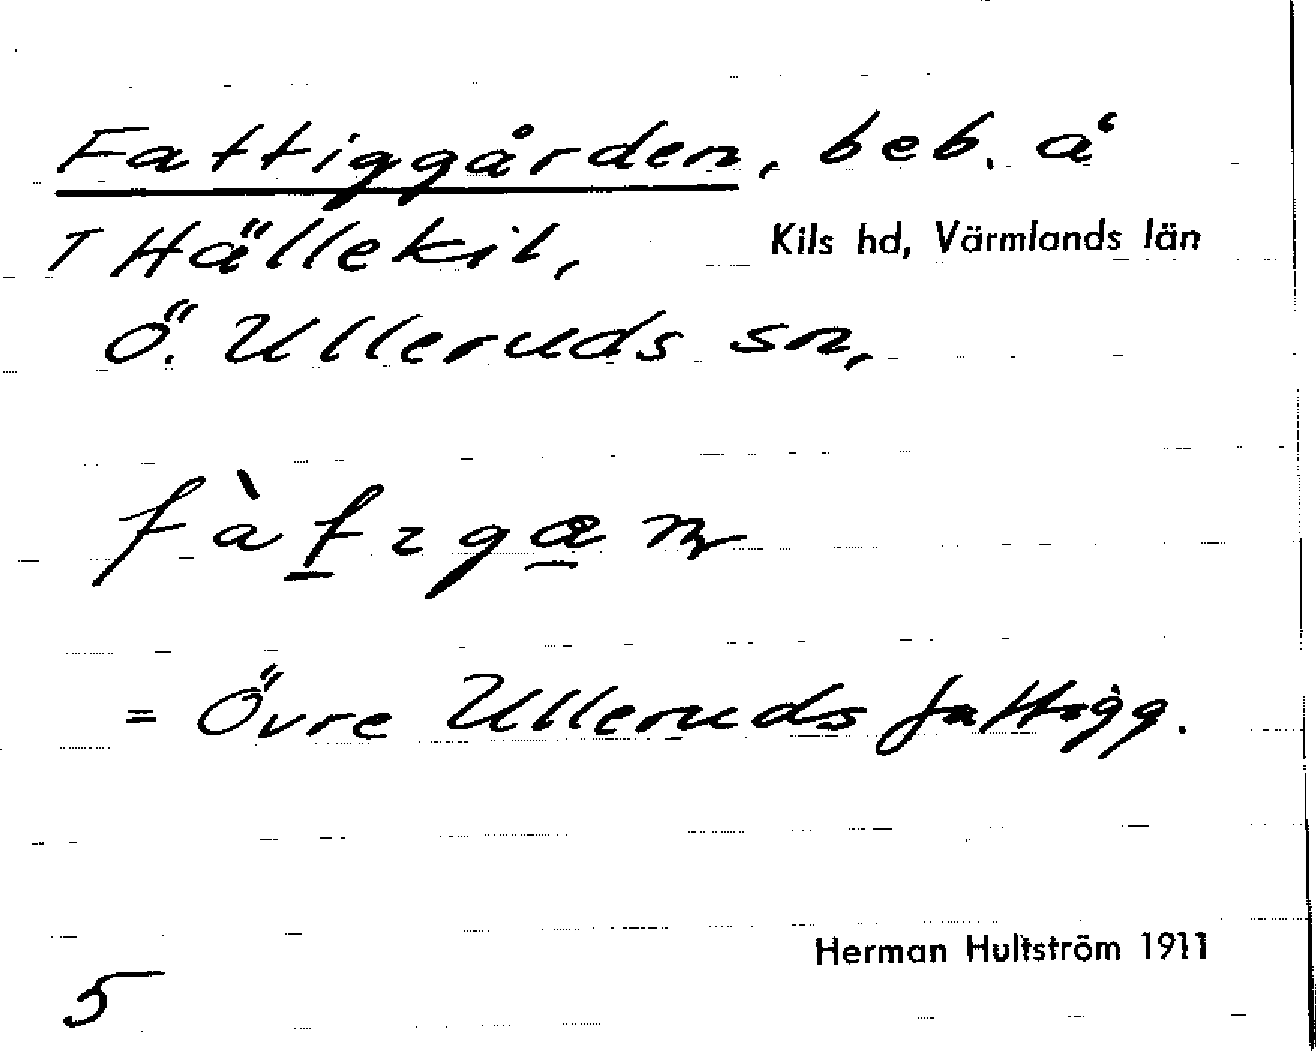 Fattiggården, beb. å
T Hällekil,
Kils hd, Värmlands län
Ö. Ulleruds sn,
= Övre Ulleruds fattigg.
Herman Hultström 1911
5